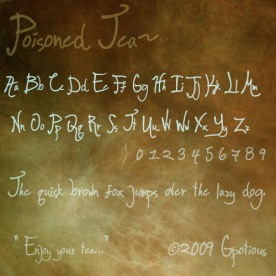 Poisoned Tea~
Aa Bb Cc Dd Ee Ff Gg Hh Ii Jj Kk Ll Mm
Nn Oo Pp Qq Rr Ss Tt Uu Vv Ww Xx Yy Zz
0 1 2 3 4 5 6 7 8 9
The quick brown fox jumps over the lazy dog.
"Enjoy your tea..." ©2009 Gpotious